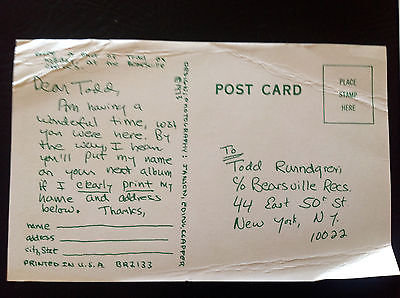 Dear Todd,
Am having a
wonderful time, wish
you were here. By
the way, I hear
you'll put my name
on your next album
if I clearly print my
name and address
below. Thanks,
name
address
city, State
PRINTED IN U.S.A BR2133
©1973
DESIGN/PHOTOGRAPHY:
POST CARD
PLACE
STAMP
HERE
To
Todd Rundgren
c/o Bearsville Recs.
44 East 50th St.
New York, N.Y.
10022